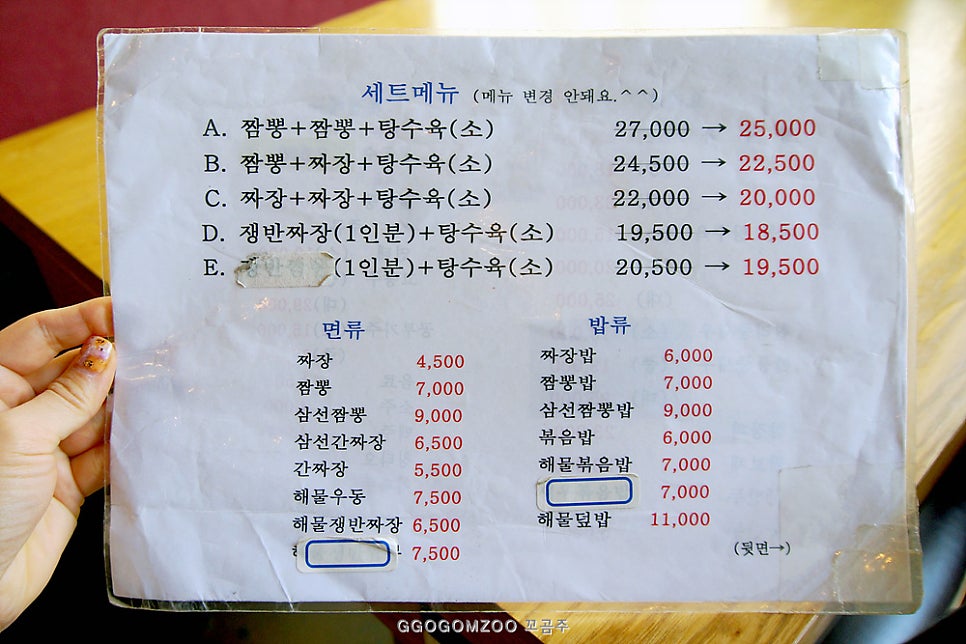 세트메뉴 (메뉴 변경 안돼요.^^)
A. 짬뽕+짬뽕+탕수육(소) 27,000 → 25,000
B. 짬뽕+짜장+탕수육(소) 24,500 → 22,500
C. 짜장+짜장+탕수육(소) 22,000 → 20,000
D. 쟁반짜장(1인분)+탕수육(소) 19,500 → 18,500
E. (1인분)+탕수육(소) 20,500 → 19,500
면류
짜장 4,500
짬뽕 7,000
삼선짬뽕 9,000
삼선간짜장 6,500
간짜장 5,500
해물우동 7,500
해물쟁반짜장 6,500
7,500
밥류
짜장밥 6,000
짬뽕밥 7,000
삼선짬뽕밥 9,000
볶음밥 6,000
해물볶음밥 7,000
7,000
해물덮밥 11,000
(뒷면→)
GGOGOMZOO 꼬곰주